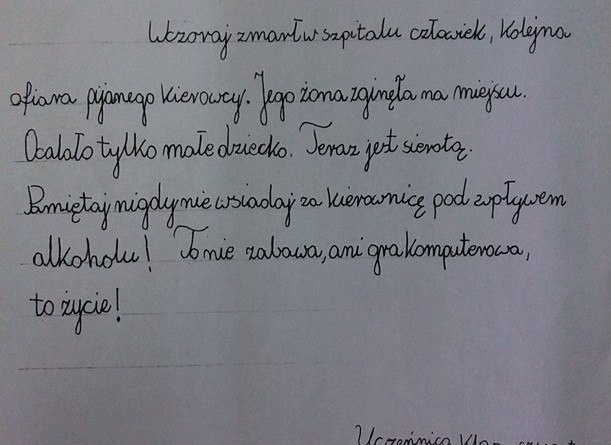 Wczoraj zmarł w szpitalu człowiek, kolejna
ofiara pijanego kierowcy. Jego żona zginęła na miejscu.
Ocalało tylko małe dziecko. Teraz jest sierotą.
Pamiętaj nigdy nie wsiadaj za kierownicę pod wpływem
alkoholu! To nie zabawa, ani gra komputerowa,
to życie!
Uczennica